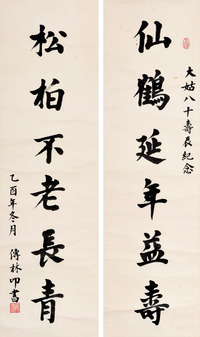 大姑八十壽辰紀念
仙鶴延年益壽
松柏不老長青
乙酉年冬月
傅林叩書